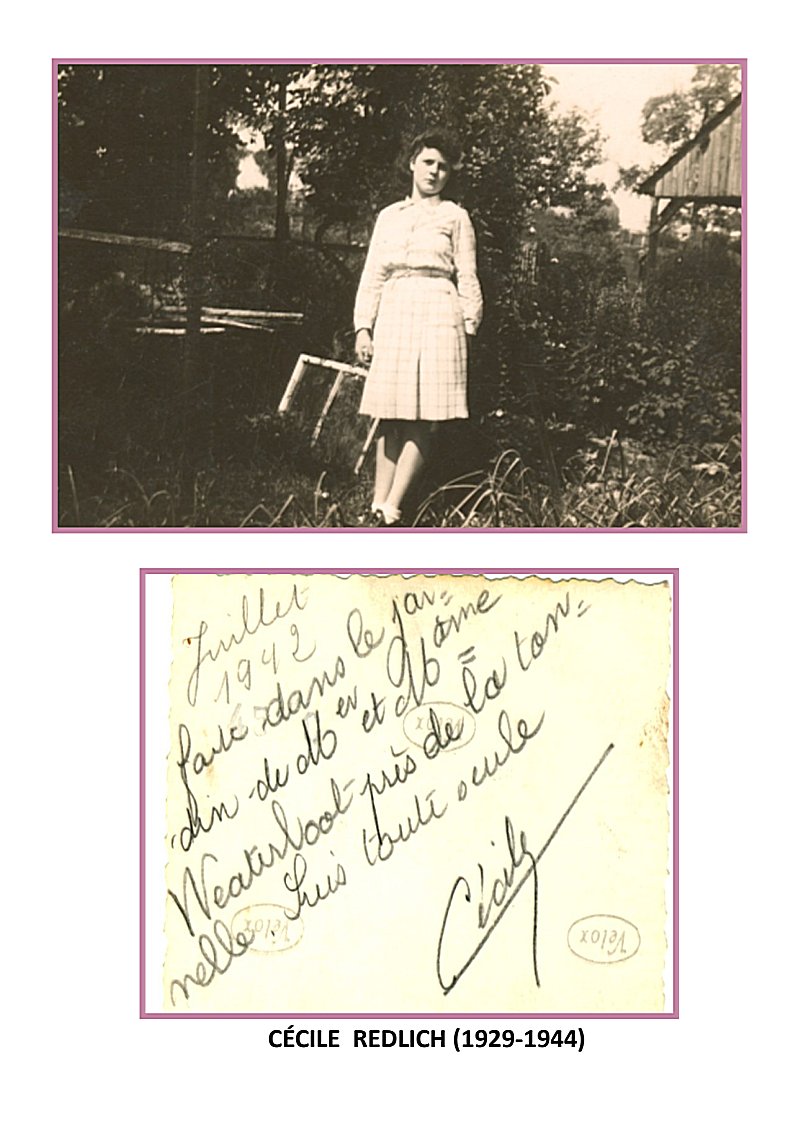 Juillet
1942
dans le jar=
din de Mer et Mame
Weaterloot près de la ton=
nelle. Suis toute seule
Cécile
Velox
Velox
Velox
CÉCILE REDLICH (1929-1944)